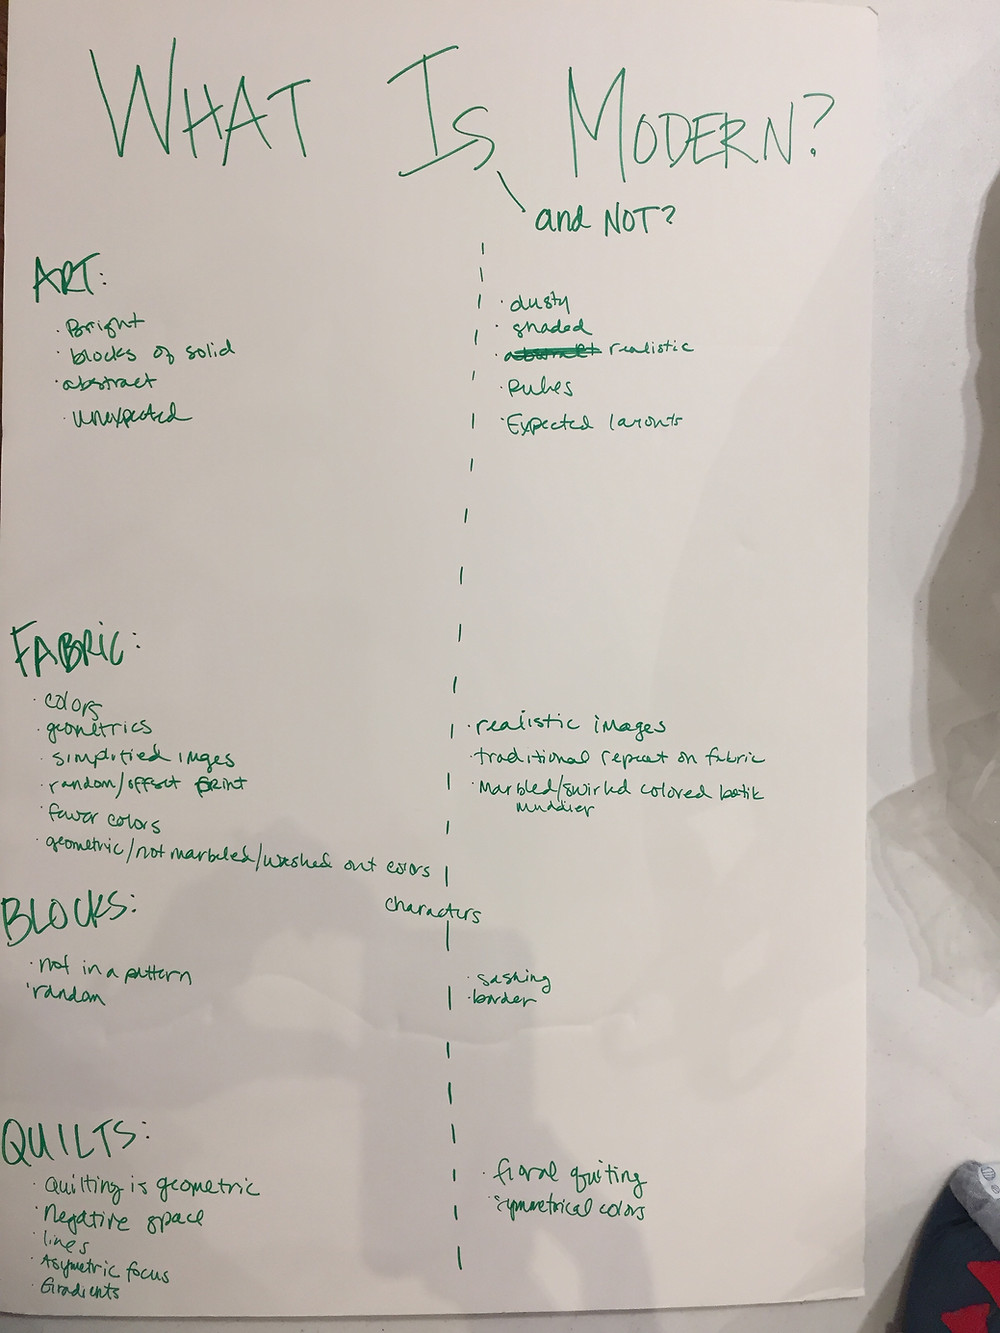 WHAT IS MODERN?
and NOT?
ART:
· Bright
· blocks of solid
· abstract
· unexpected
· dusty
· shaded
· realistic
· Rules
· Expected layouts
FABRIC:
· colors
· geometrics
· simplified images
· random/offset print
· fewer colors
· geometric/not marbeled/washed out colors
· realistic images
· traditional repeat on fabric
· Marbled/swirled colored batik
muddier
characters
BLOCKS:
· not in a pattern
· random
· sashing
· border
QUILTS:
· Quilting is geometric
· Negative space
· lines
· Asymetric focus
· Gradients
· floral quilting
· symmetrical colors